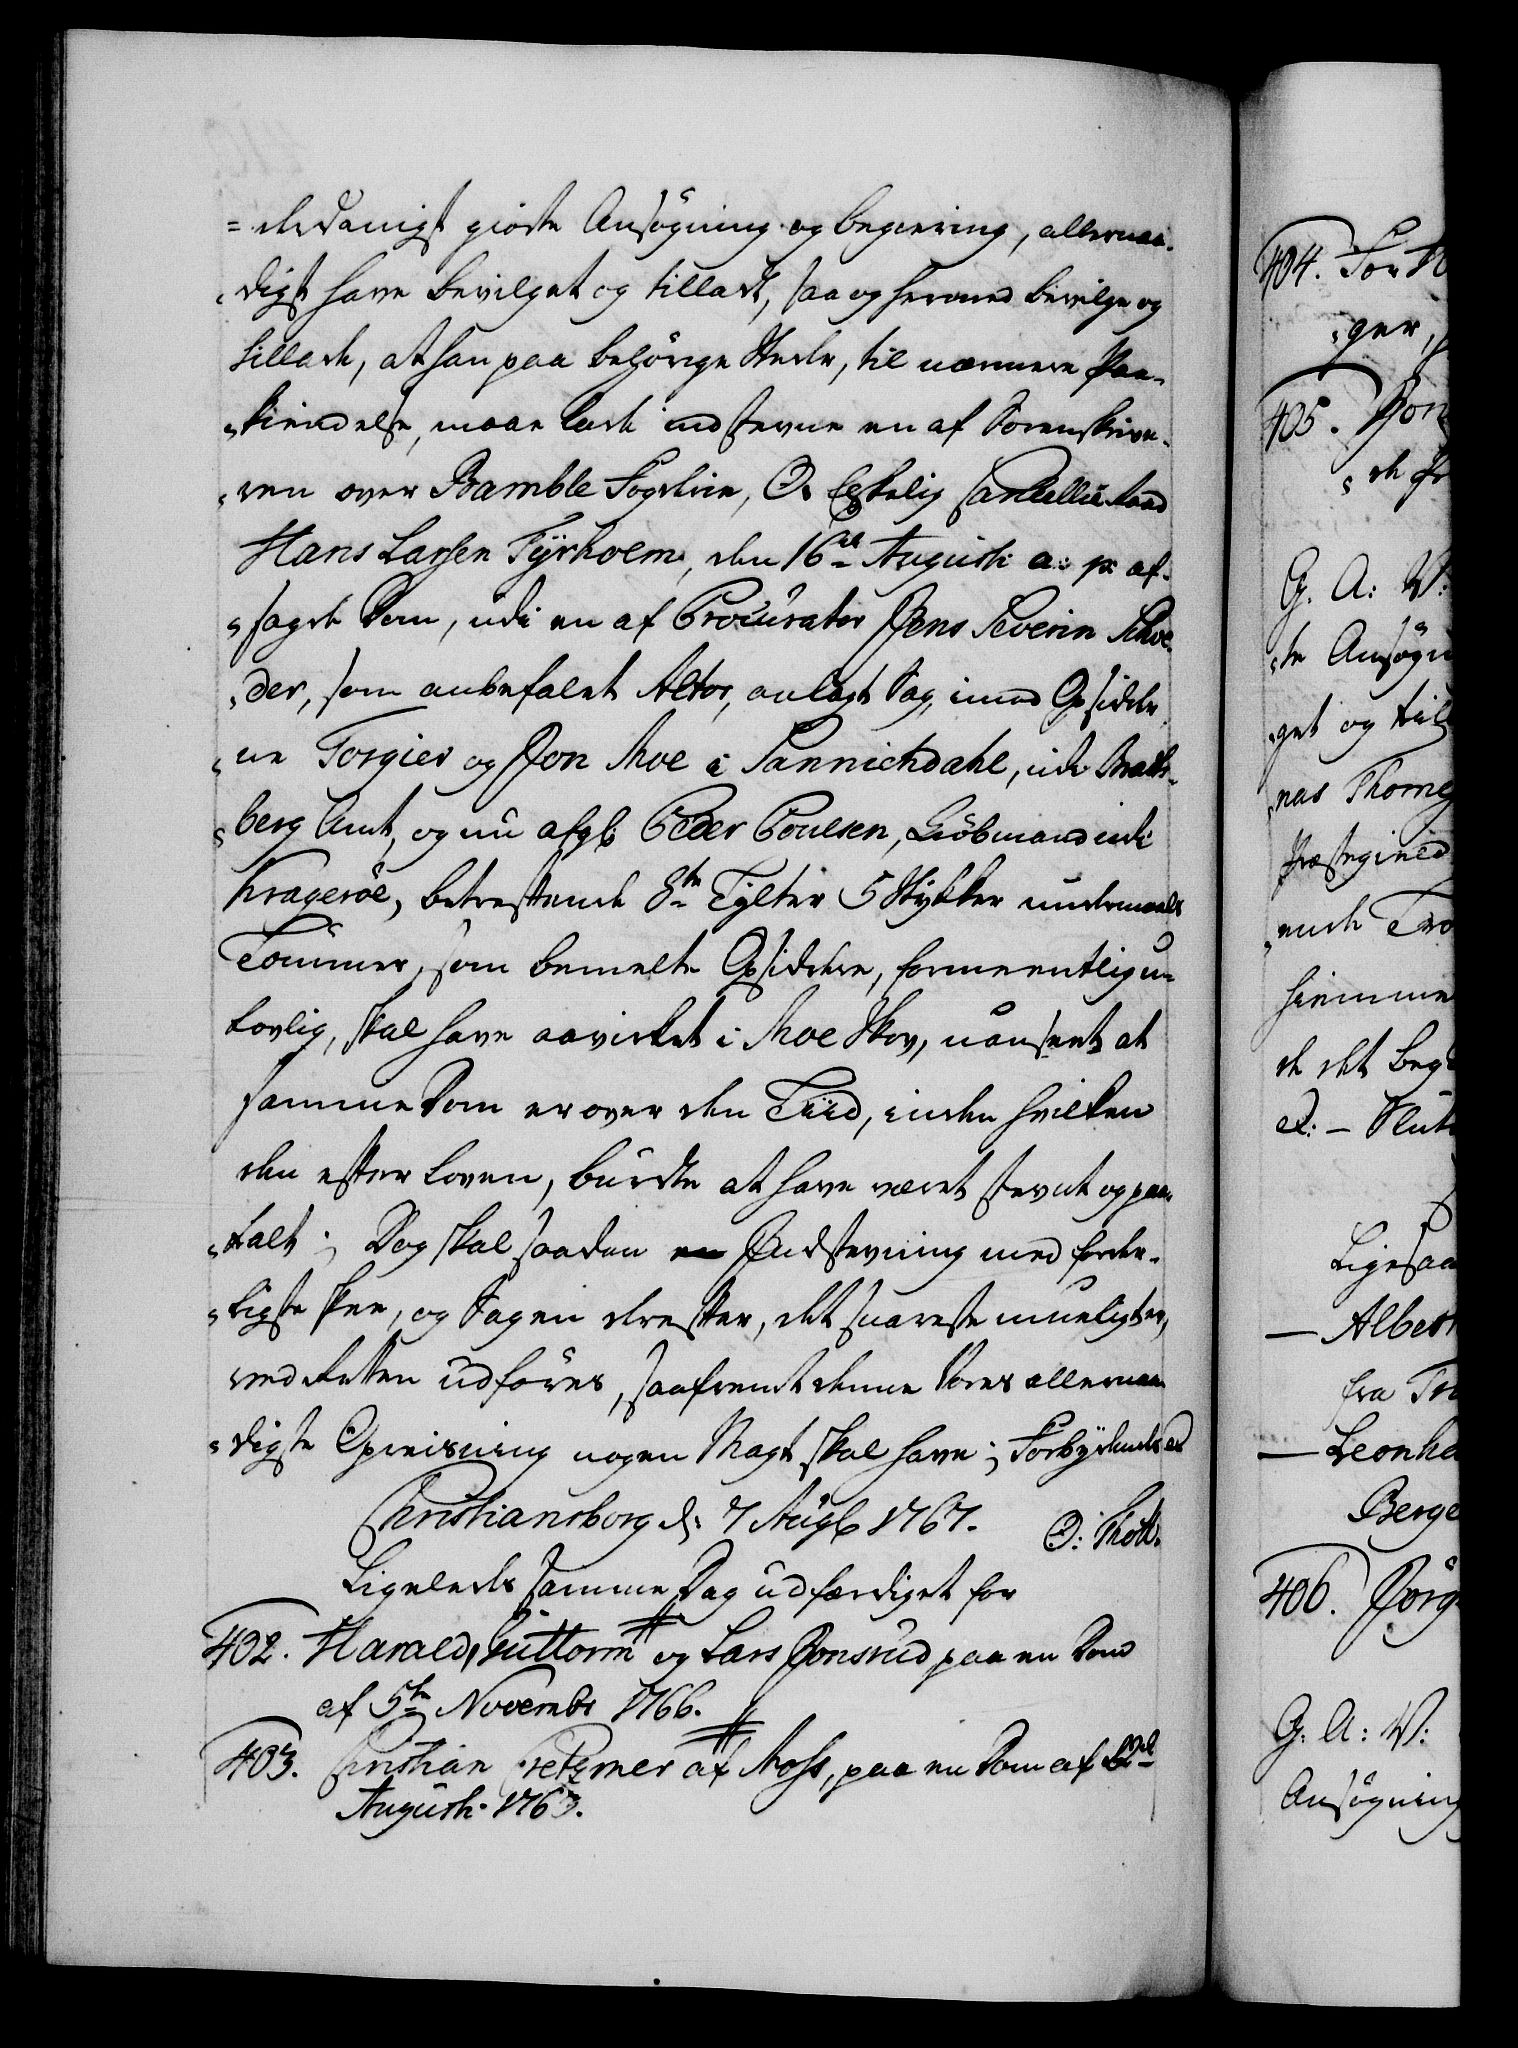 =derdanigst giorte Ansøgning og begiering, allernaa-
digst have bevilget og tilladt, saa og hermed bevilge og
tillade, at han paa behörige Steder, til nærmere Paa-
kiendelse, maae lade indstevne en af Sorenskrive-
ren over Bamble Fogderie, Os Elskelig Cancellieraad
Hans Larsen Fÿrholm, den 16de Augusti a: p: af-
sagde Dom, udi en af Procurator Jens Severin Schrø-
der, som anbefalet Actor, anlagt Sag, imod Opsidder
ne Torgier og Jon Moe i Sannichdahl, udi Brats-
berg Amt, og nu afgl: Peder Poulsen, Kiöbmand udi
Kragerøe, betreffende 8te Tÿlter 5 Stÿkker undermaals
Tömmer, som bemelte Opsiddere, formeentlig u-
lovlig, skal have avirket i Moe Skov, uanseet at
samme Dom er over den Tiid, inden hvilken
den efter Loven, burdte at have været stevnt og paa-
talt; Dog skal saadan Indstevning med forder-
ligste skee, og Sagen derefter, det snareste mueligt er,
ved Retten udføres, saafremt denne Vores allernaa
digste Opreisning nogen Magt skal have; Forbydendes
Christiansborg d: 7 Aug: 1767. O: Thott.
Ligeledes samme Dag udfærdiget for
402. Harald, Guttorm og Lars Jonsrud paa en Dom
af 5te Novembr 1766.
403. Christian Cretzmer af Moss, paa en Dom af
Augusti 1763.
404. For
ger,
405. Jon
de
G. A: V:
te Ansøgn
get og til
nas Thorne
Præstegield
ende Tro
hiemme
de det beg
Slut
Ligesaa
— Albert
fra Tr
— Leonha
Berge
406. Jörg
G. A: V:
Ansøgning